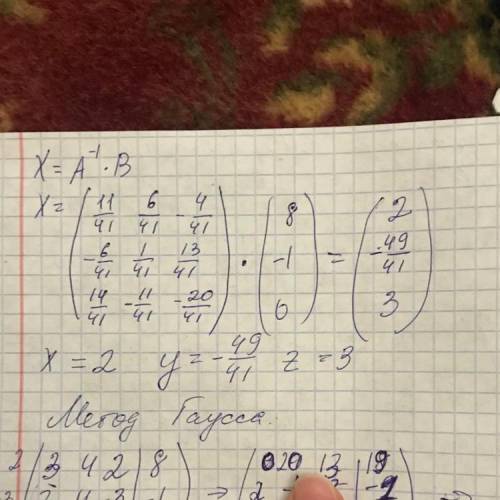 X = A⁻¹ · B
X = ( 11/41 6/41 -4/41 ) ( 8 ) ( 2 )
( -6/41 1/41 13/41 ) · ( -1 ) = ( -49/41 )
( 14/41 -11/41 -20/41 ) ( 6 ) ( 3 )
X = 2 y = -49/41 z = 3
Метод Гаусса.
2 ( 3 4 2 | 8 ) → ( 0 20 13 | 19 )